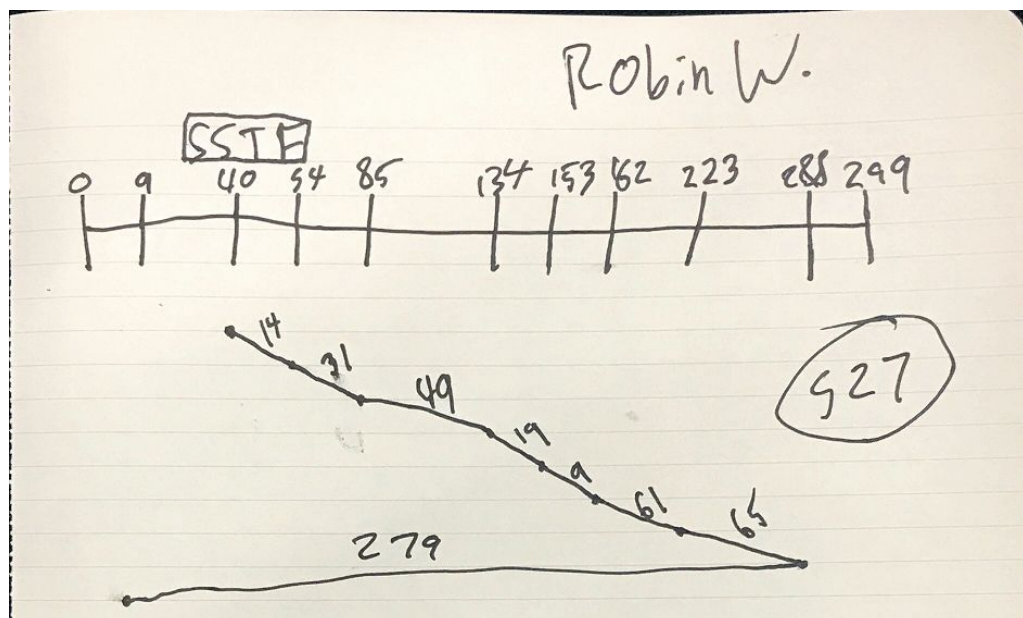 Robin W.
SSTF
0 9 40 54 85 134 153 162 223 288 299
14
31
49
19
9
61
65
279
527